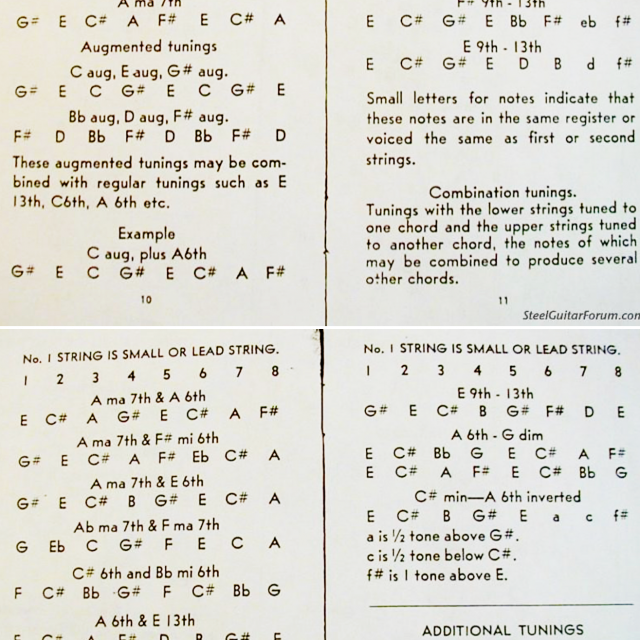 A ma 7th
G# E C# A F# E C# A
Augmented tunings
C aug, E aug, G# aug.
G# E C G# E C G# E
Bb aug, D aug, F# aug.
F# D Bb F# D Bb F# D
These augmented tunings may be com-
bined with regular tunings such as E
13th, C6th, A 6th etc.
Example
C aug, plus A6th
G# E C G# E C# A F#
10
F# 9th - 13th
E C# G# E Bb F# eb f#
E 9th - 13th
E C# G# E D B d f#
Small letters for notes indicate that
these notes are in the same register or
voiced the same as first or second
strings.
Combination tunings.
Tunings with the lower strings tuned to
one chord and the upper strings tuned
to another chord, the notes of which
may be combined to produce several
other chords.
11
SteelGuitarForum.com
No. 1 STRING IS SMALL OR LEAD STRING.
1 2 3 4 5 6 7 8
A ma 7th & A 6th
E C# A G# E C# A F#
A ma 7th & F# mi 6th
G# E C# A F# Eb C# A
A ma 7th & E 6th
G# E C# B G# E C# A
Ab ma 7th & F ma 7th
G Eb C G# F E C A
C# 6th and Bb mi 6th
F C# Bb G# F C# Bb G
A 6th & E 13th
E C# A F# D B G# E
No. 1 STRING IS SMALL OR LEAD STRING.
1 2 3 4 5 6 7 8
E 9th - 13th
G# E C# B G# F# D E
A 6th - G dim
E C# Bb G E C# A F#
E C# A F# E C# Bb G
C# min—A 6th inverted
E C# B G# E a c f#
a is ½ tone above G#.
c is ½ tone below C#.
f# is 1 tone above E.
ADDITIONAL TUNINGS